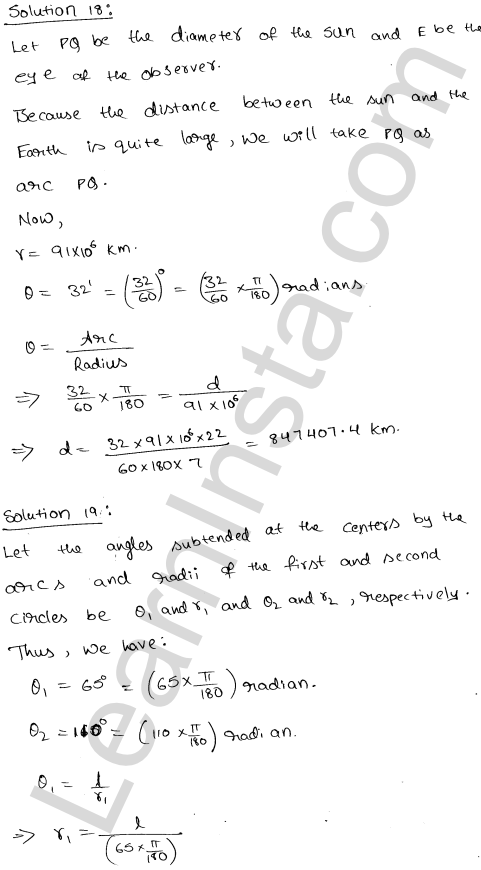 Solution 18:
Let PQ be the diameter of the sun and E be the
eye of the observer.
Because the distance between the sun and the
Earth is quite large, we will take PQ as
arc PQ.
Now,
r = 91×10⁶ km.
θ = 32' = (32/60)° = (32/60 × π/180) radians
θ = Arc/Radius
⇒ 32/60 × π/180 = d/(91×10⁶)
⇒ d = (32×91×10⁶×22)/(60×180×7) = 847407.4 km.
Solution 19:
Let the angles subtended at the centers by the
arcs and radii of the first and second
circles be θ₁ and r₁ and θ₂ and r₂, respectively.
Thus, we have:
θ₁ = 65° = (65 × π/180) radian.
θ₂ = 110° = (110 × π/180) radian.
θ₁ = l/r₁
⇒ r₁ = l/(65 × π/180)
LearnInsta.com